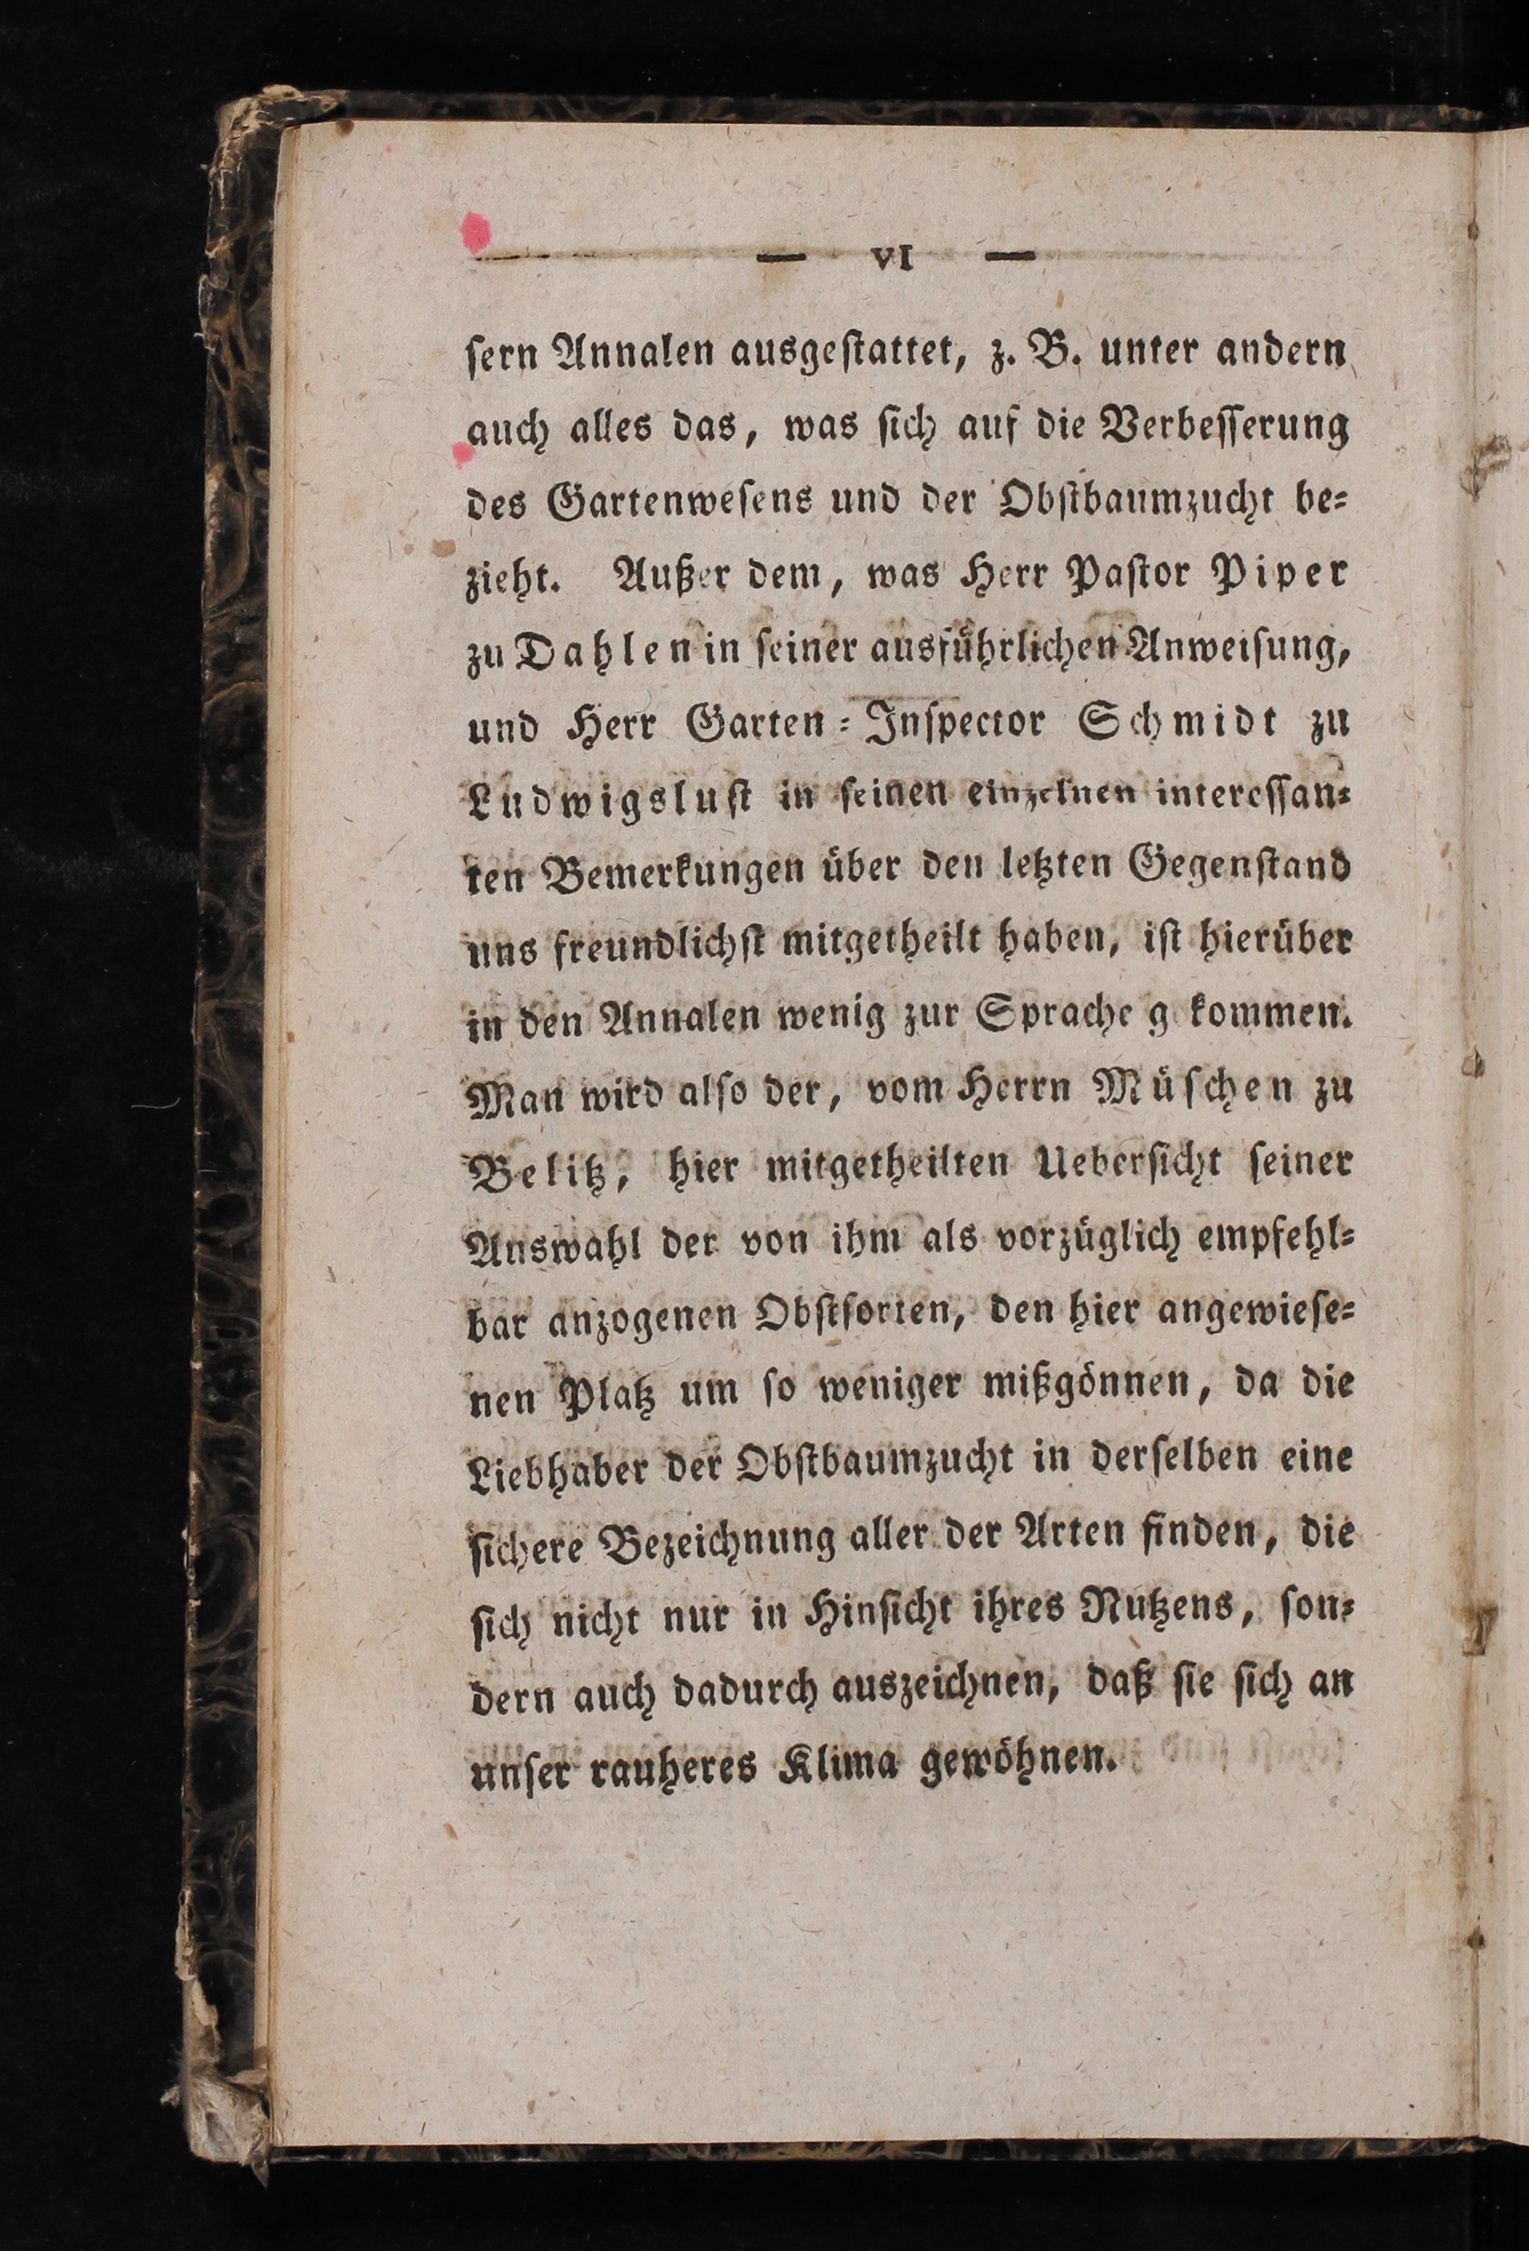 — VI —
ſern Annalen ausgeſtattet, z. B. unter andern
auch alles das, was ſich auf die Verbeſſerung
des Gartenweſens und der Obſtbaumzucht be⸗
zieht. Außer dem, was Herr Paſtor Piper
zu Dahlen in ſeiner ausführlichen Anweiſung,
und Herr Garten⸗Inſpector Schmidt zu
Ludwigsluſt in ſeinen einzelnen intereſſan⸗
ten Bemerkungen über den letzten Gegenſtand
uns freundlichſt mitgetheilt haben, iſt hierüber
in den Annalen wenig zur Sprache g kommen.
Man wird alſo der, vom Herrn Müſchen zu
Belitz, hier mitgetheilten Ueberſicht ſeiner
Auswahl der von ihm als vorzüglich empfehl⸗
bar anzogenen Obſtſorten, den hier angewieſe⸗
nen Platz um ſo weniger mißgönnen, da die
Liebhaber der Obſtbaumzucht in derſelben eine
ſichere Bezeichnung aller der Arten finden, die
ſich nicht nur in Hinſicht ihres Nutzens, ſon⸗
dern auch dadurch auszeichnen, daß ſie ſich an
unſer rauheres Klima gewöhnen.